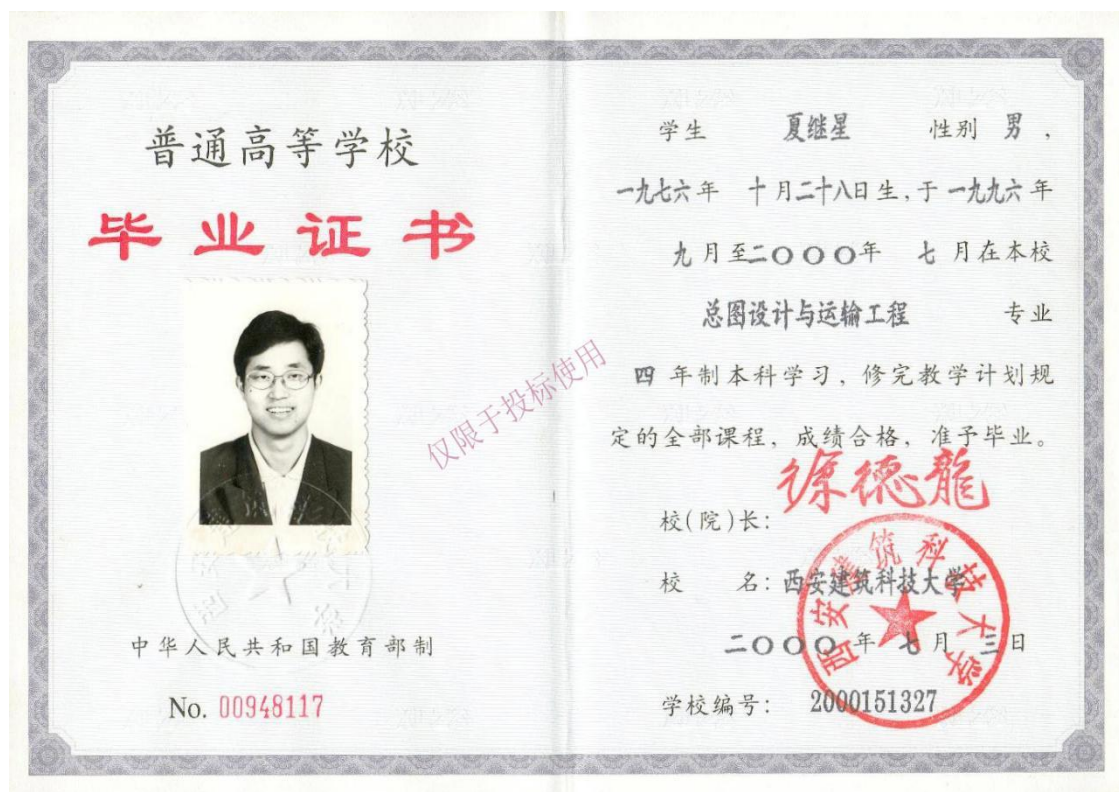 普通高等学校
毕业证书
中华人民共和国教育部制
No. 00948117
仅限于投标使用
学生 夏继星 性别 男，
一九七六年 十月二十八日生，于一九九六年
九月至二〇〇〇年 七月在本校
总图设计与运输工程 专业
四年制本科学习，修完教学计划规
定的全部课程，成绩合格，准予毕业。
校(院)长：徐德龍
校 名：西安建筑科技大学
西安建筑科技大学
二〇〇〇年七月三日
学校编号：2000151327